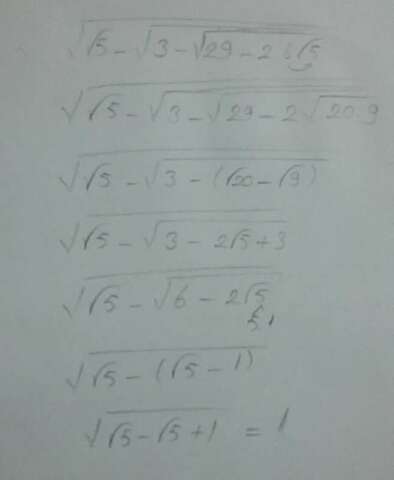 √(√5 - √(3 - √(29 - 2·6√5)))
√(√5 - √(3 - √(29 - 2√(20·9))))
√(√5 - √(3 - (√20 - √9)))
√(√5 - √(3 - 2√5 + 3))
√(√5 - √(6 - 2√5))
5 1
√(√5 - (√5 - 1))
√(√5 - √5 + 1) = 1